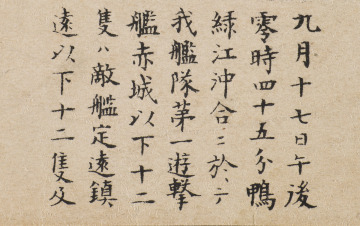 九月十七日午後
零時四十五分鴨
緑江沖合ニ於テ
我艦隊第一遊撃
艦赤城以下十二
隻ハ敵艦定遠鎮
遠以下十二隻及